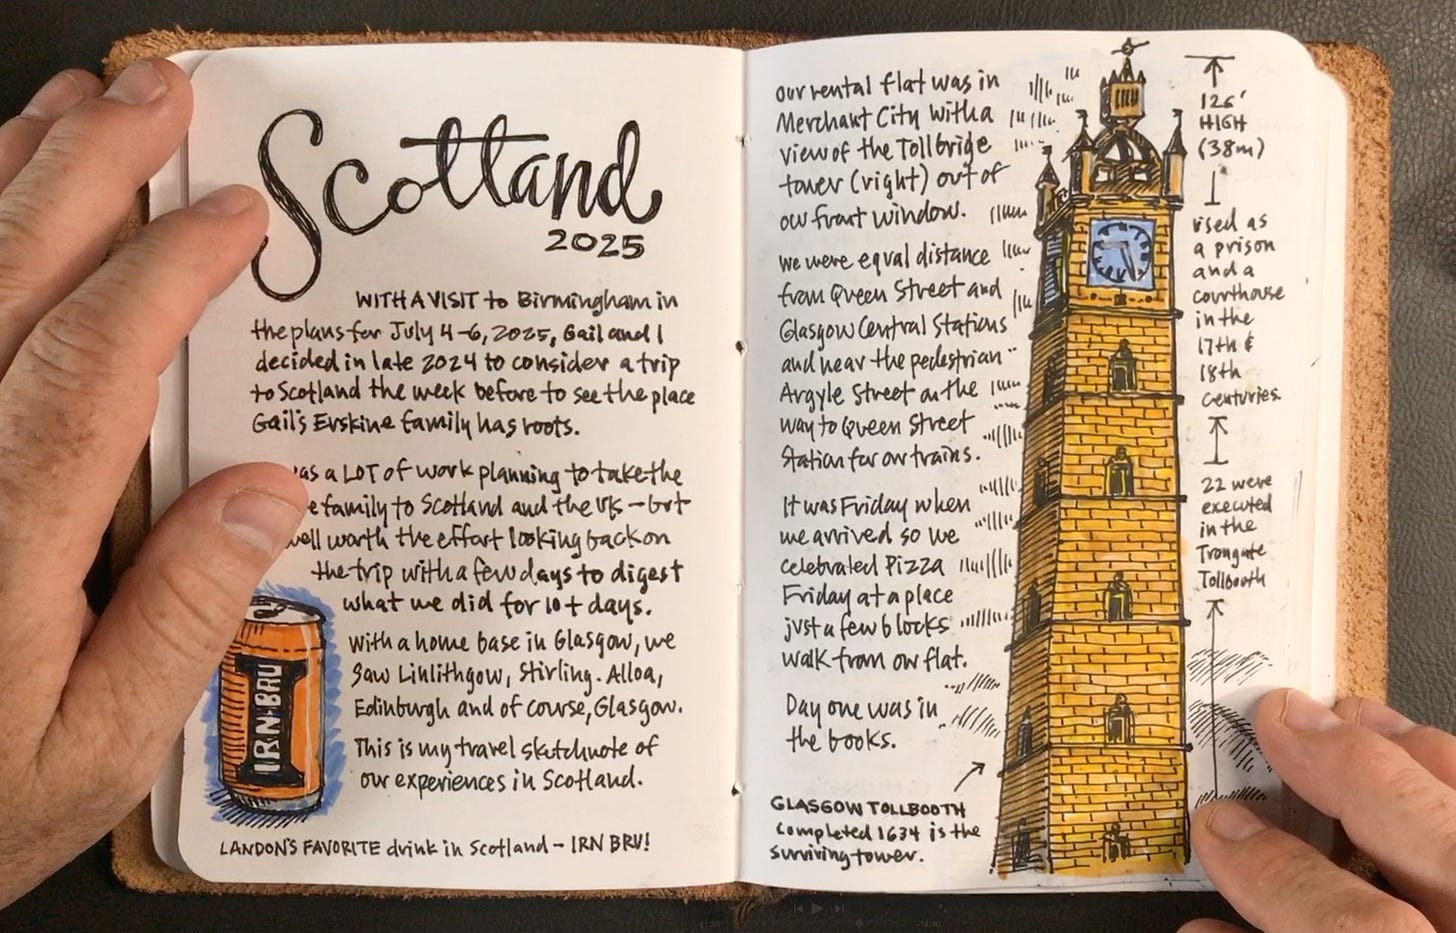 Scotland
2025
WITH A VISIT to Birmingham in
the plans for July 4-6, 2025, Gail and I
decided in late 2024 to consider a trip
to Scotland the week before to see the place
Gail's Erskine family has roots.
as a LOT of work planning to take the
family to Scotland and the UK — but
well worth the effort looking back on
the trip with a few days to digest
what we did for 10+ days.
With a home base in Glasgow, we
saw Linlithgow, Stirling. Alloa,
Edinburgh and of course, Glasgow.
This is my travel sketchnote of
our experiences in Scotland.
IRN-BRU
LANDON'S FAVORITE drink in Scotland - IRN BRU!
our rental flat was in
Merchant City with a
view of the Tollbridge
tower (right) out of
our front window.
We were equal distance
from Queen Street and
Glasgow Central Stations
and near the pedestrian
Argyle Street on the
way to Queen Street
Station for our trains.
It was Friday when
we arrived so we
celebrated Pizza
Friday at a place
just a few blocks
walk from our flat.
Day one was in
the books.
GLASGOW TOLLBOOTH
completed 1634 is the
surviving tower.
126'
HIGH
(38m)
Used as
a prison
and a
courthouse
in the
17th &
18th
Centuries.
22 were
executed
in the
Trongate
Tollbooth